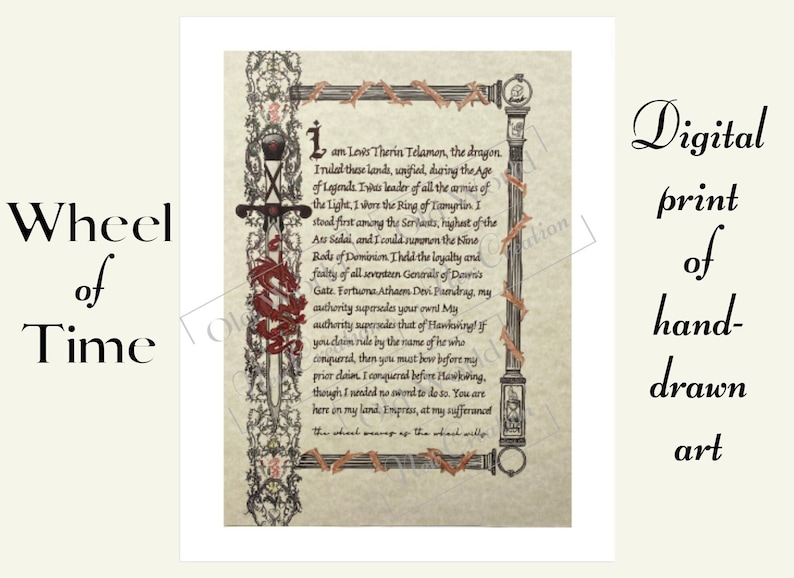 Wheel
of
Time
I am Lews Therin Telamon, the dragon.
I ruled these lands, unified, during the Age
of Legends. I was leader of all the armies of
the Light, I wore the Ring of Tamyrlin. I
stood first among the Servants, highest of the
Aes Sedai, and I could summon the Nine
Rods of Dominion. I held the loyalty and
fealty of all seventeen Generals of Dawn's
Gate. Fortuona Athaem Devi Paendrag, my
authority supersedes your own! My
authority supersedes that of Hawkwing! If
you claim rule by the name of he who
conquered, then you must bow before my
prior claim. I conquered before Hawkwing,
though I needed no sword to do so. You are
here on my land, Empress, at my sufferance!
the wheel weaves as the wheel wills
Digital
print
of
hand-
drawn
art